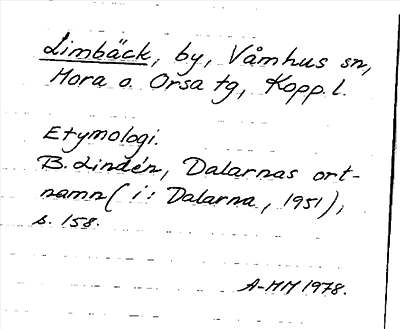 Limbäck, by, Våmhus sn,
Mora o. Orsa tg, Kopp. l.
Etymologi.
B. Lindén, Dalarnas ort-
namn (i: Dalarna, 1951),
s. 158.
A-MM 1978.